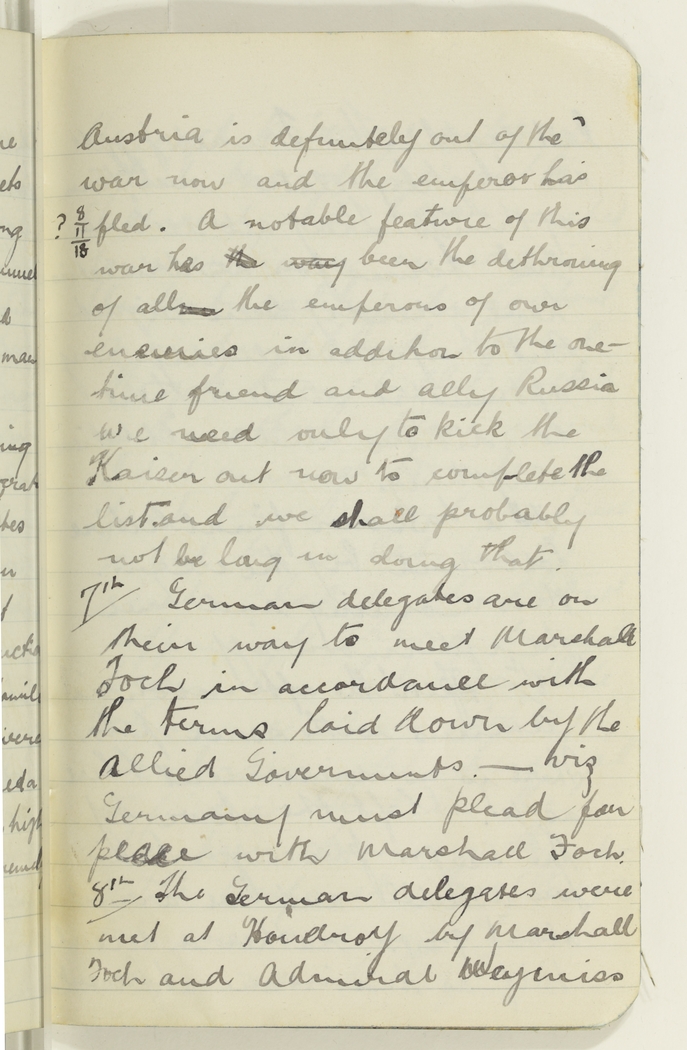 Austria is definitely out of the
war now and the emperor has
? 8/11/18 fled. A notable feature of this
war has the way been the dethroning
of all the emperors of our
enemies in addition to the one-
time friend and ally Russia
we need only to kick the
Kaiser out now to complete the
list and we shall probably
not be long in doing that.
7th German delegates are on
their way to meet Marshall
Foch in accordance with
the terms laid down by the
Allied Goverments. — viz
Germany must plead for
peace with Marshall Foch.
8th The German delegates were
met at Houdroy by Marshall
Foch and Admiral Weymiss